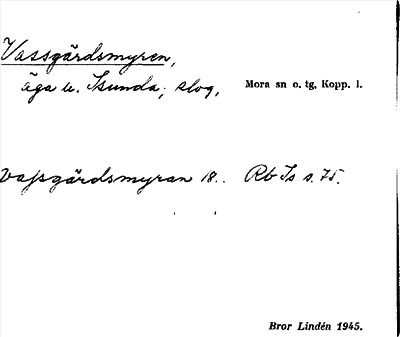 Vassgärdsmyren,
äga u. Isunda; slog, Mora sn o. tg, Kopp. l.
Vassgärdsmyran 18.. Rb Is s. 75.
Bror Lindén 1945.